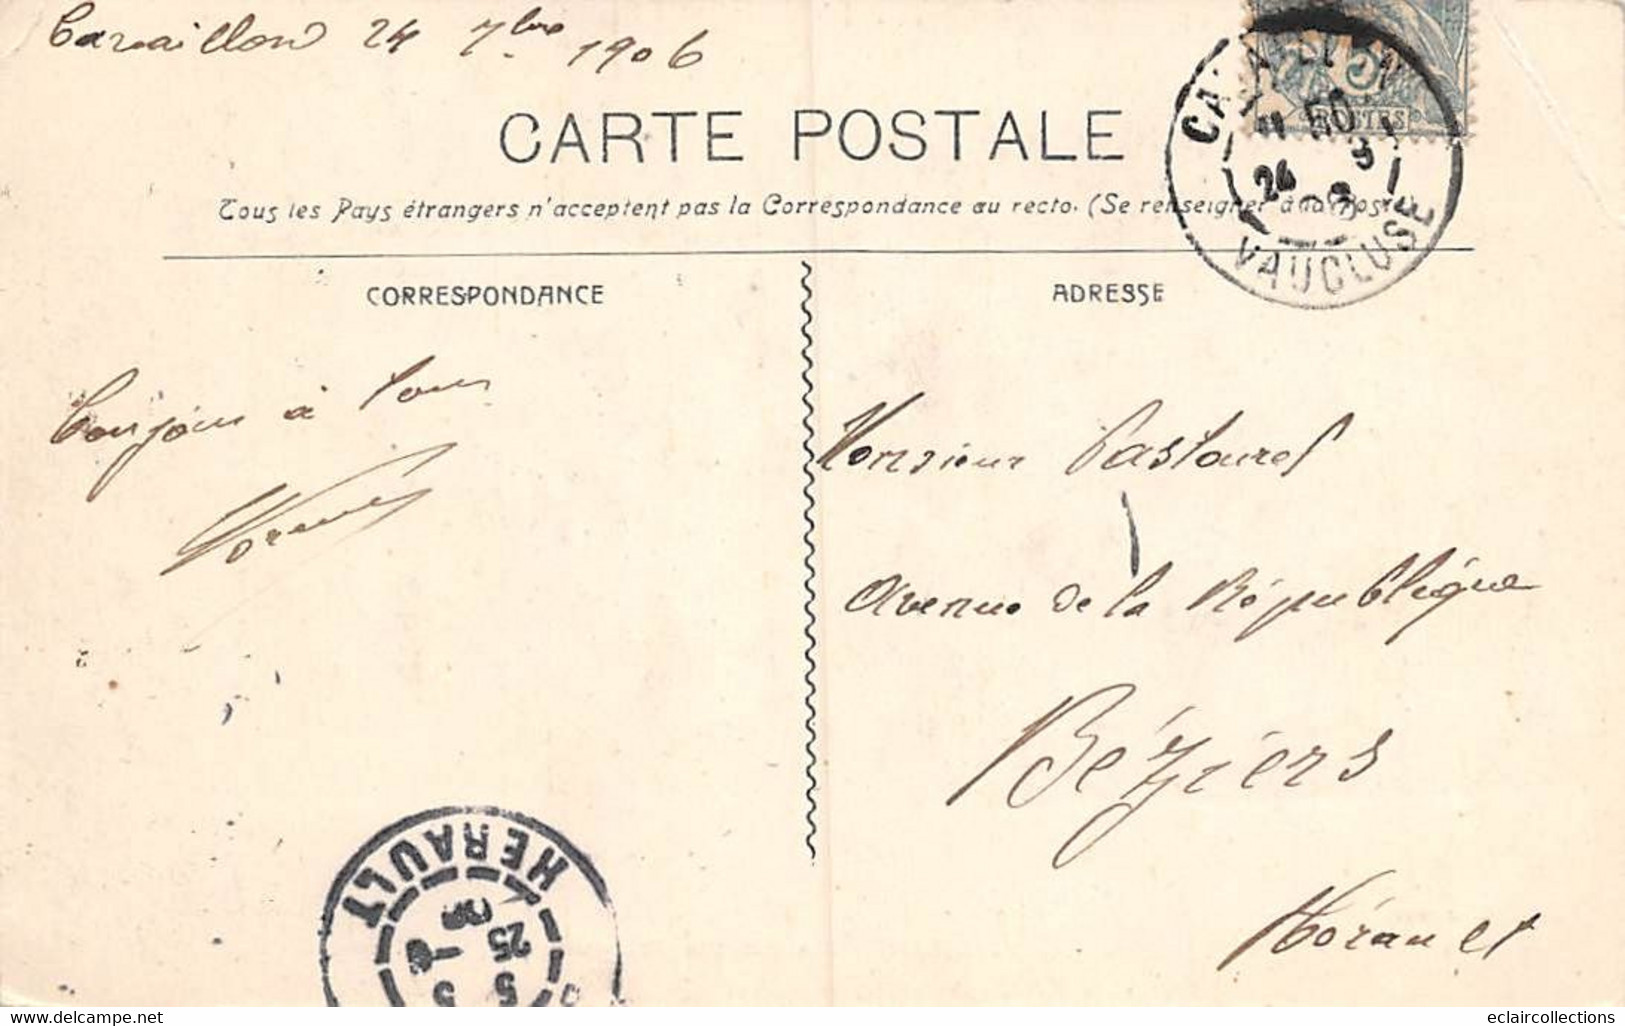 Cavaillon 24 7bre 1906
CARTE POSTALE
Tous les Pays étrangers n'acceptent pas la Correspondance au recto. (Se renseigner à la Pos
CAVAILLON
11 50
24 9
VAUCLUSE
5
POSTES
CORRESPONDANCE
ADRESSE
Bonjour à tous
Monsieur Pastourel
Avenue de la République
Béziers
Hérault
HERAULT
25
eclaircollections
https://www.delcampe.net
eclaircollections